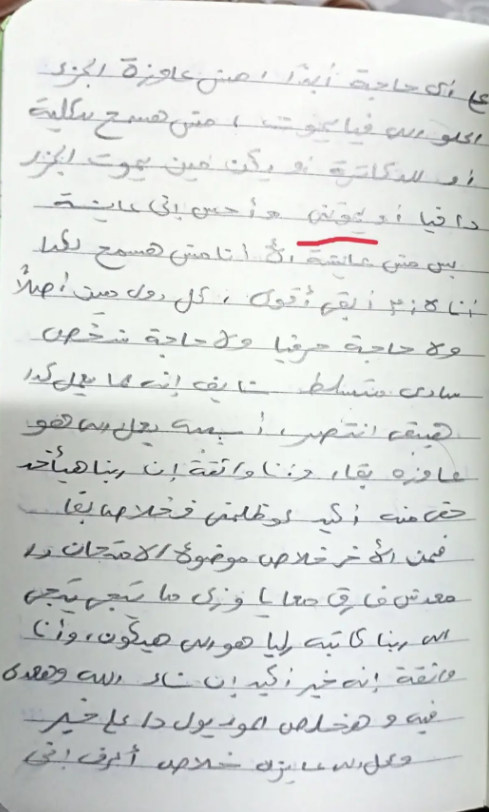 على أى حاجة أبدًا، مش عاوزة الجزء
الحلو اللى فيا يموت، مش هسمح لكلية
أو للدكاترة نو يكن مين يموت الجزء
دا فيا أو يموتنى و أحس إنى عايشة
بس مش عايشة، لأ أنا مش هسمح بكدا
أنا لازم أبقى أقوى، كل دول مين أصلًا
ولا حاجة حرفيا ولا حاجة شخص
سادى متسلط شايف إنه لما يعمل كدا
هيبقى انتصر، أسيبه يعمل اللى هو
عاوزه بقا، و أنا واثقة إن ربنا هيأخد
حقى منه أكيد لو ظلمنى فخلاص بقا
فمن الأخر خلاص موضوع الامتحان دا
معدش فارق معايا و زى ما تيجى تيجى
اللى ربنا كاتبه ليا هو اللى هيكون، وأنا
واثقة إنه خير أكيد إن شاء الله وهعدى
فيه و هخلص الموديول دا على خير
وعمل اللى عايزه خلاص أعرف إنى